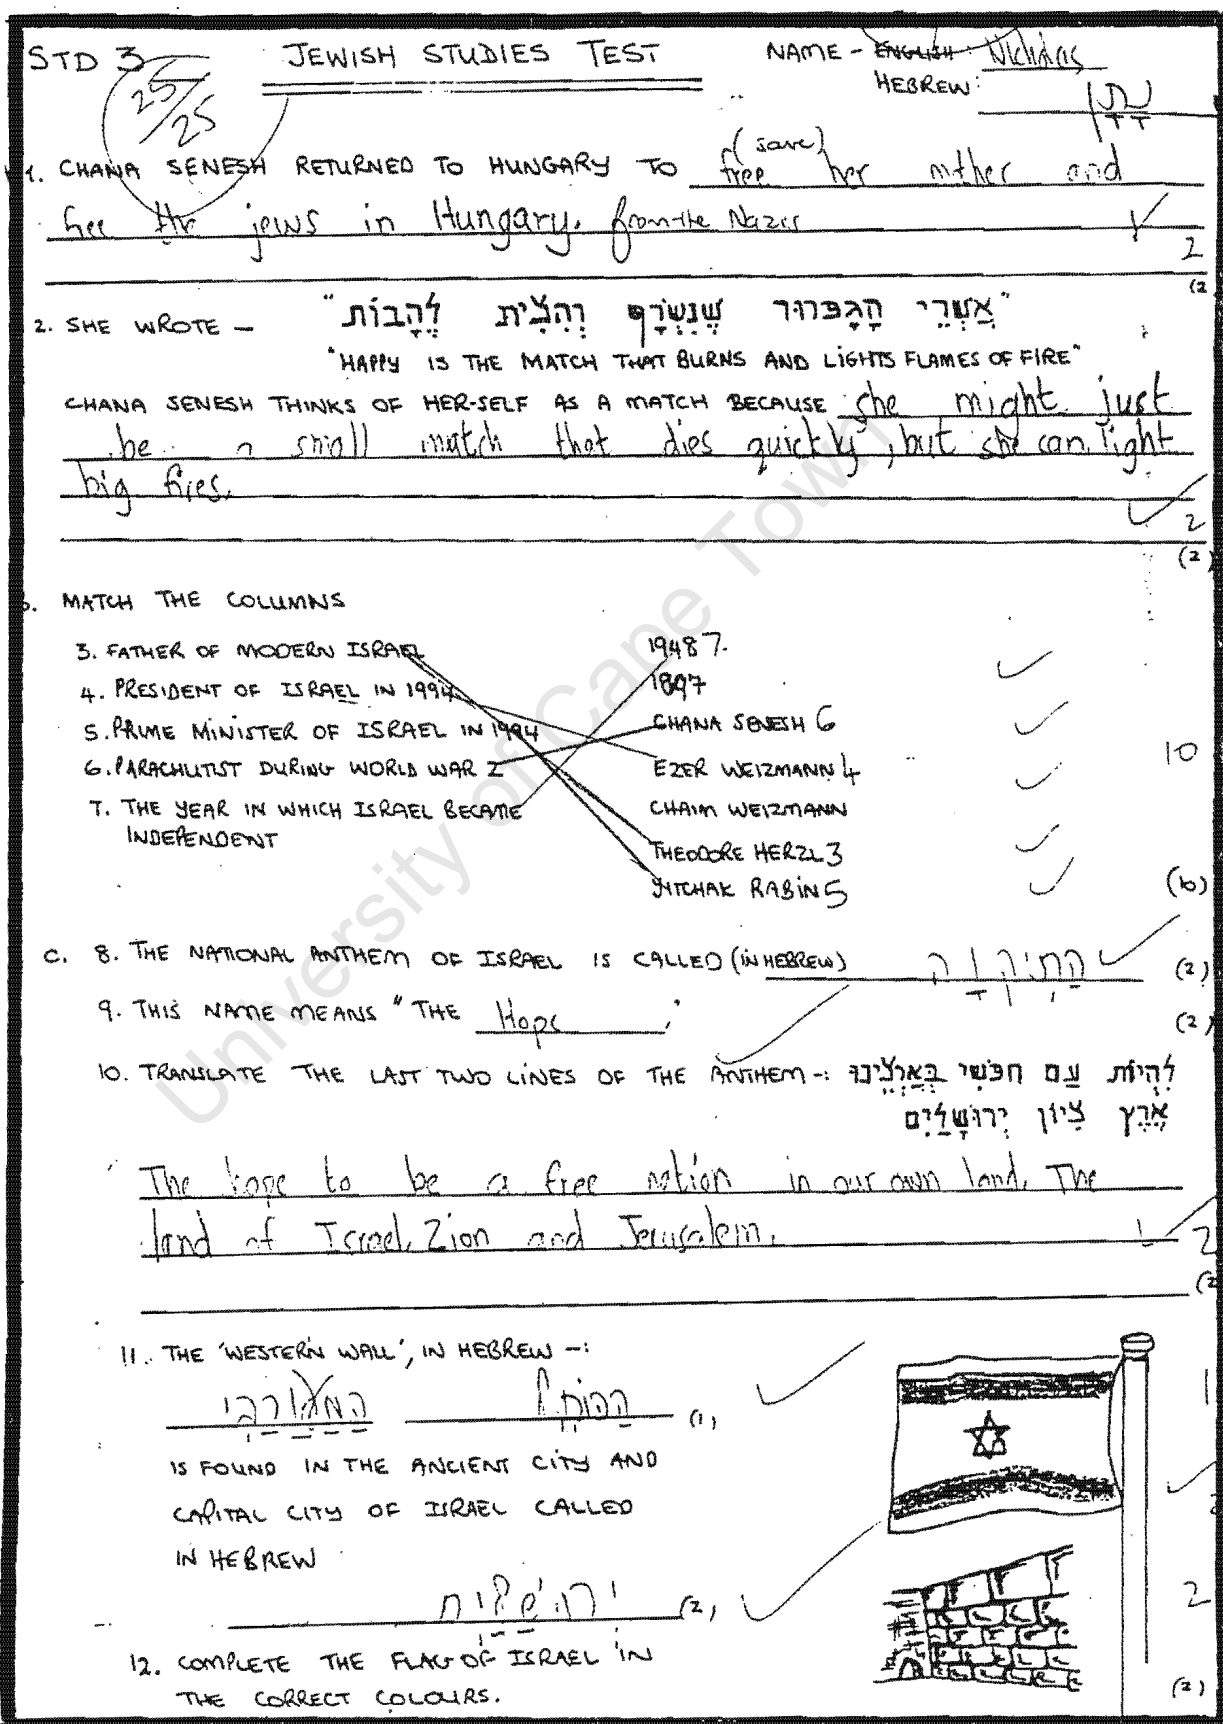 STD 3 JEWISH STUDIES TEST NAME - ENGLISH Nicholas
25/25 HEBREW: נתן
1. CHANA SENESH RETURNED TO HUNGARY TO free (save) her mther and
free the jews in Hungary. from the Nazis
2
(2
2. SHE WROTE - "אַשְׁרֵי הַגַּפְרוּר שֶׁנִּשְׂרַף וְהִצִּית לְהָבוֹת"
"HAPPY IS THE MATCH THAT BURNS AND LIGHTS FLAMES OF FIRE"
CHANA SENESH THINKS OF HER-SELF AS A MATCH BECAUSE she might just
be a small match that dies quickly, but she can light
big fires.
2
(2)
B. MATCH THE COLUMNS
3. FATHER OF MODERN ISRAEL 1948 7.
4. PRESIDENT OF ISRAEL IN 1994 1897
5. PRIME MINISTER OF ISRAEL IN 1994 CHANA SENESH 6
6. PARACHUTIST DURING WORLD WAR 2 EZER WEIZMANN 4
7. THE YEAR IN WHICH ISRAEL BECAME CHAIM WEIZMANN
INDEPENDENT THEODORE HERZL 3
YITCHAK RABIN 5
10
(10)
C. 8. THE NATIONAL ANTHEM OF ISRAEL IS CALLED (IN HEBREW) הַתִּיקְוָה (2)
9. THIS NAME MEANS "THE Hope " (2)
10. TRANSLATE THE LAST TWO LINES OF THE ANTHEM -: לִהְיוֹת עַם חָפְשִׁי בְּאַרְצֵינוּ
אֶרֶץ צִיוֹן יְרוּשָׁלַיִם
The hope to be a free nation in our own land. The
land of Israel, Zion and Jerusalem.
2
(2
11. THE 'WESTERN WALL', IN HEBREW -:
הַכּוֹתֶל הַמַּעֲרָבִי (1)
1
IS FOUND IN THE ANCIENT CITY AND
CAPITAL CITY OF ISRAEL CALLED
IN HEBREW
(2)
2
12. COMPLETE THE FLAG OF ISRAEL IN
THE CORRECT COLOURS. (2)
University of Cape Town